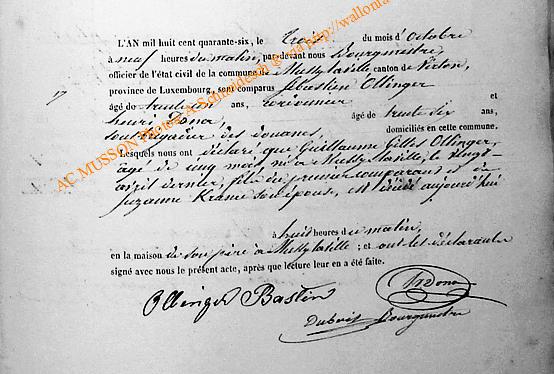 L'AN mil huit cent quarante-six, le trois du mois d'octobre
à neuf heures du matin, par-devant nous Bourgmestre,
officier de l'état civil de la commune de Mussy la ville canton de Virton,
province de Luxembourg, sont comparus Sébastien Ollinger
âgé de trente un ans, cordonnier et
17
henri Dona, âgé de trente six ans,
sous brigadier des douanes, domiciliés en cette commune.
Lesquels nous ont déclaré que Guillaume Gilles Ollinger,
âgé de cinq mois, né à Mussy la ville, le vingt
avril dernier, fils du premier comparant et de
Suzanne Krame son épouse, est décédé aujourd'hui
à huit heures du matin,
en la maison de son père à Mussy la ville ; et ont les déclarants
signé avec nous le présent acte, après que lecture leur en a été faite.
Ollinger Bastin
Dona
Dubois Bourgmestre
AC MUSSON Photos A Schneidesch geria http://wallonia